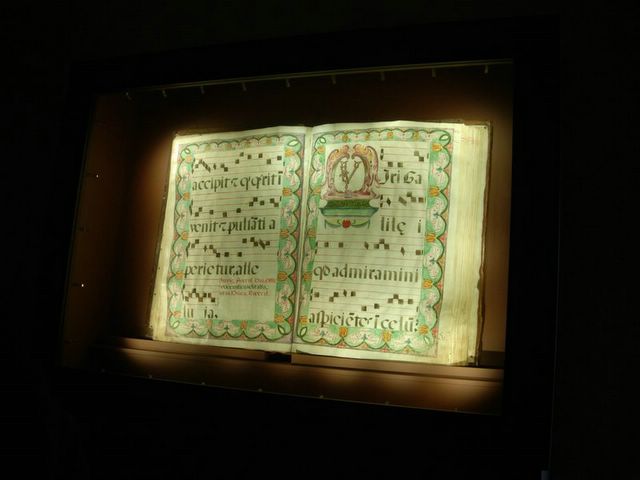 accipit⁊ q̄ q̄rit i
venit⁊ pulsāti a
perietur. alle
lu ia.
Viri Ga
lilę i
qd admiramini
aspiciētes i celū?